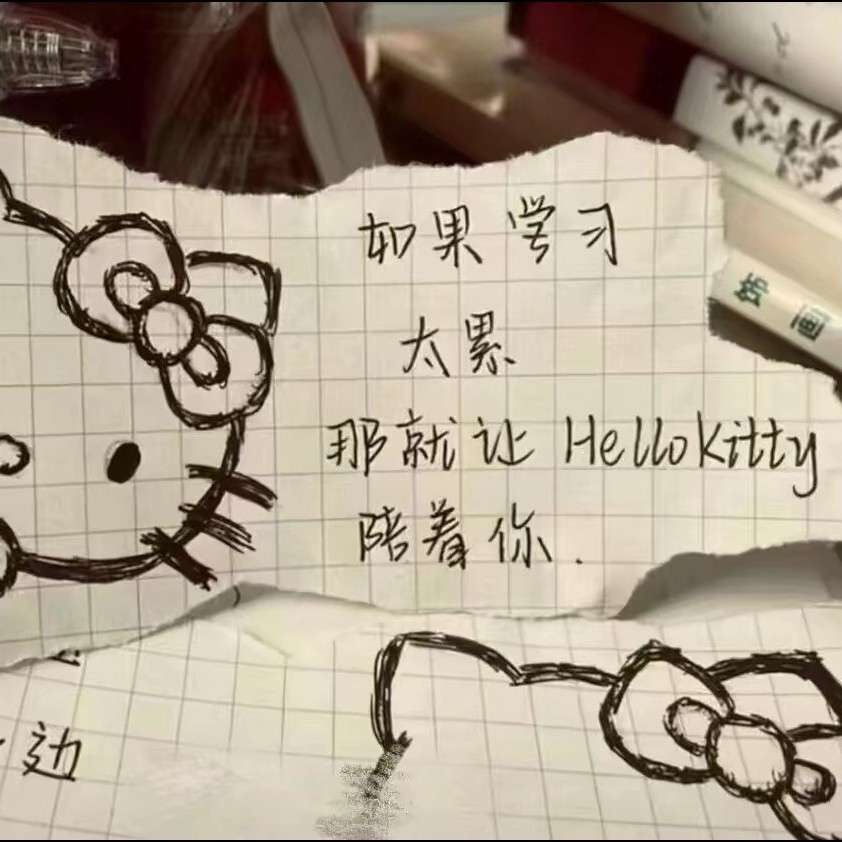 如果学习
太累
那就让 Hellokitty
陪着你.
饰画
边